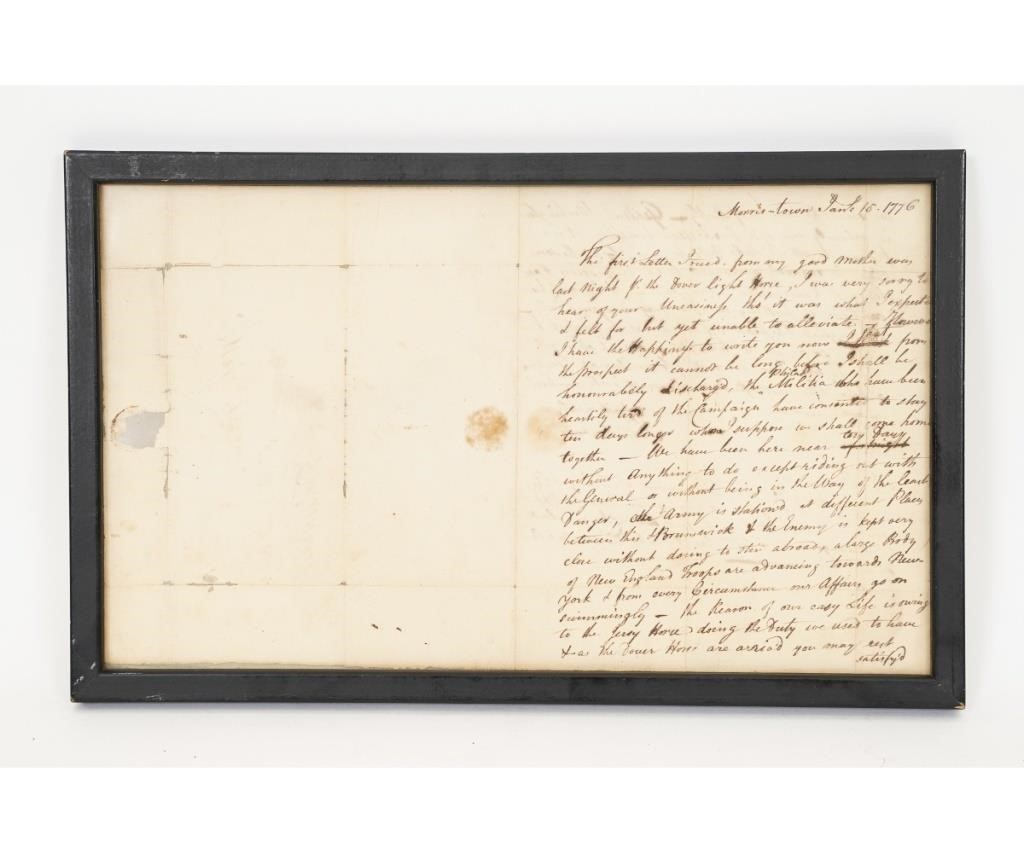 Morris-town Jany 15 - 1776
The first Letter I recd. from my good Mother was
last Night pr the Dover light Horse, I was very sorry to
hear of your Uneasiness tho' it was what I expected
& felt for but yet unable to alleviate
I have the Happiness to write you now that from
the prospect it cannot be long before I shall be
honourably discharg'd, the Philada Militia who have been
heartily tired of the Campaign have consented to stay
ten days longer when I suppose we shall come home
together — We have been here near ten Days
without Anything to do except riding out with
the General or without being in the Way of the least
Danger, the Army is station'd at different Places
between this & Brunswick & the Enemy is kept very
close without daring to stir abroad, a large Body
of New England Troops are advancing towards New-
York & from every Circumstance our Affairs go on
swimmingly — the Reason of our easy Life is owing
to the Jersy Horse doing the Duty we used to have
& as the Dover Horse are arriv'd you may rest
satisfy'd